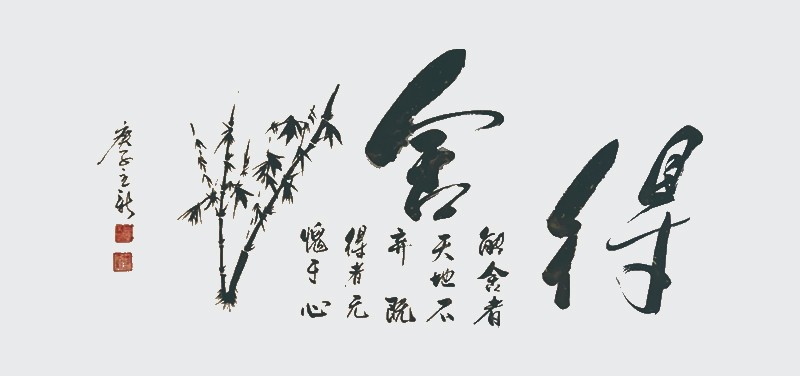 舍得
能舍者
天地不
弃既
得者无
愧于心
庚子立